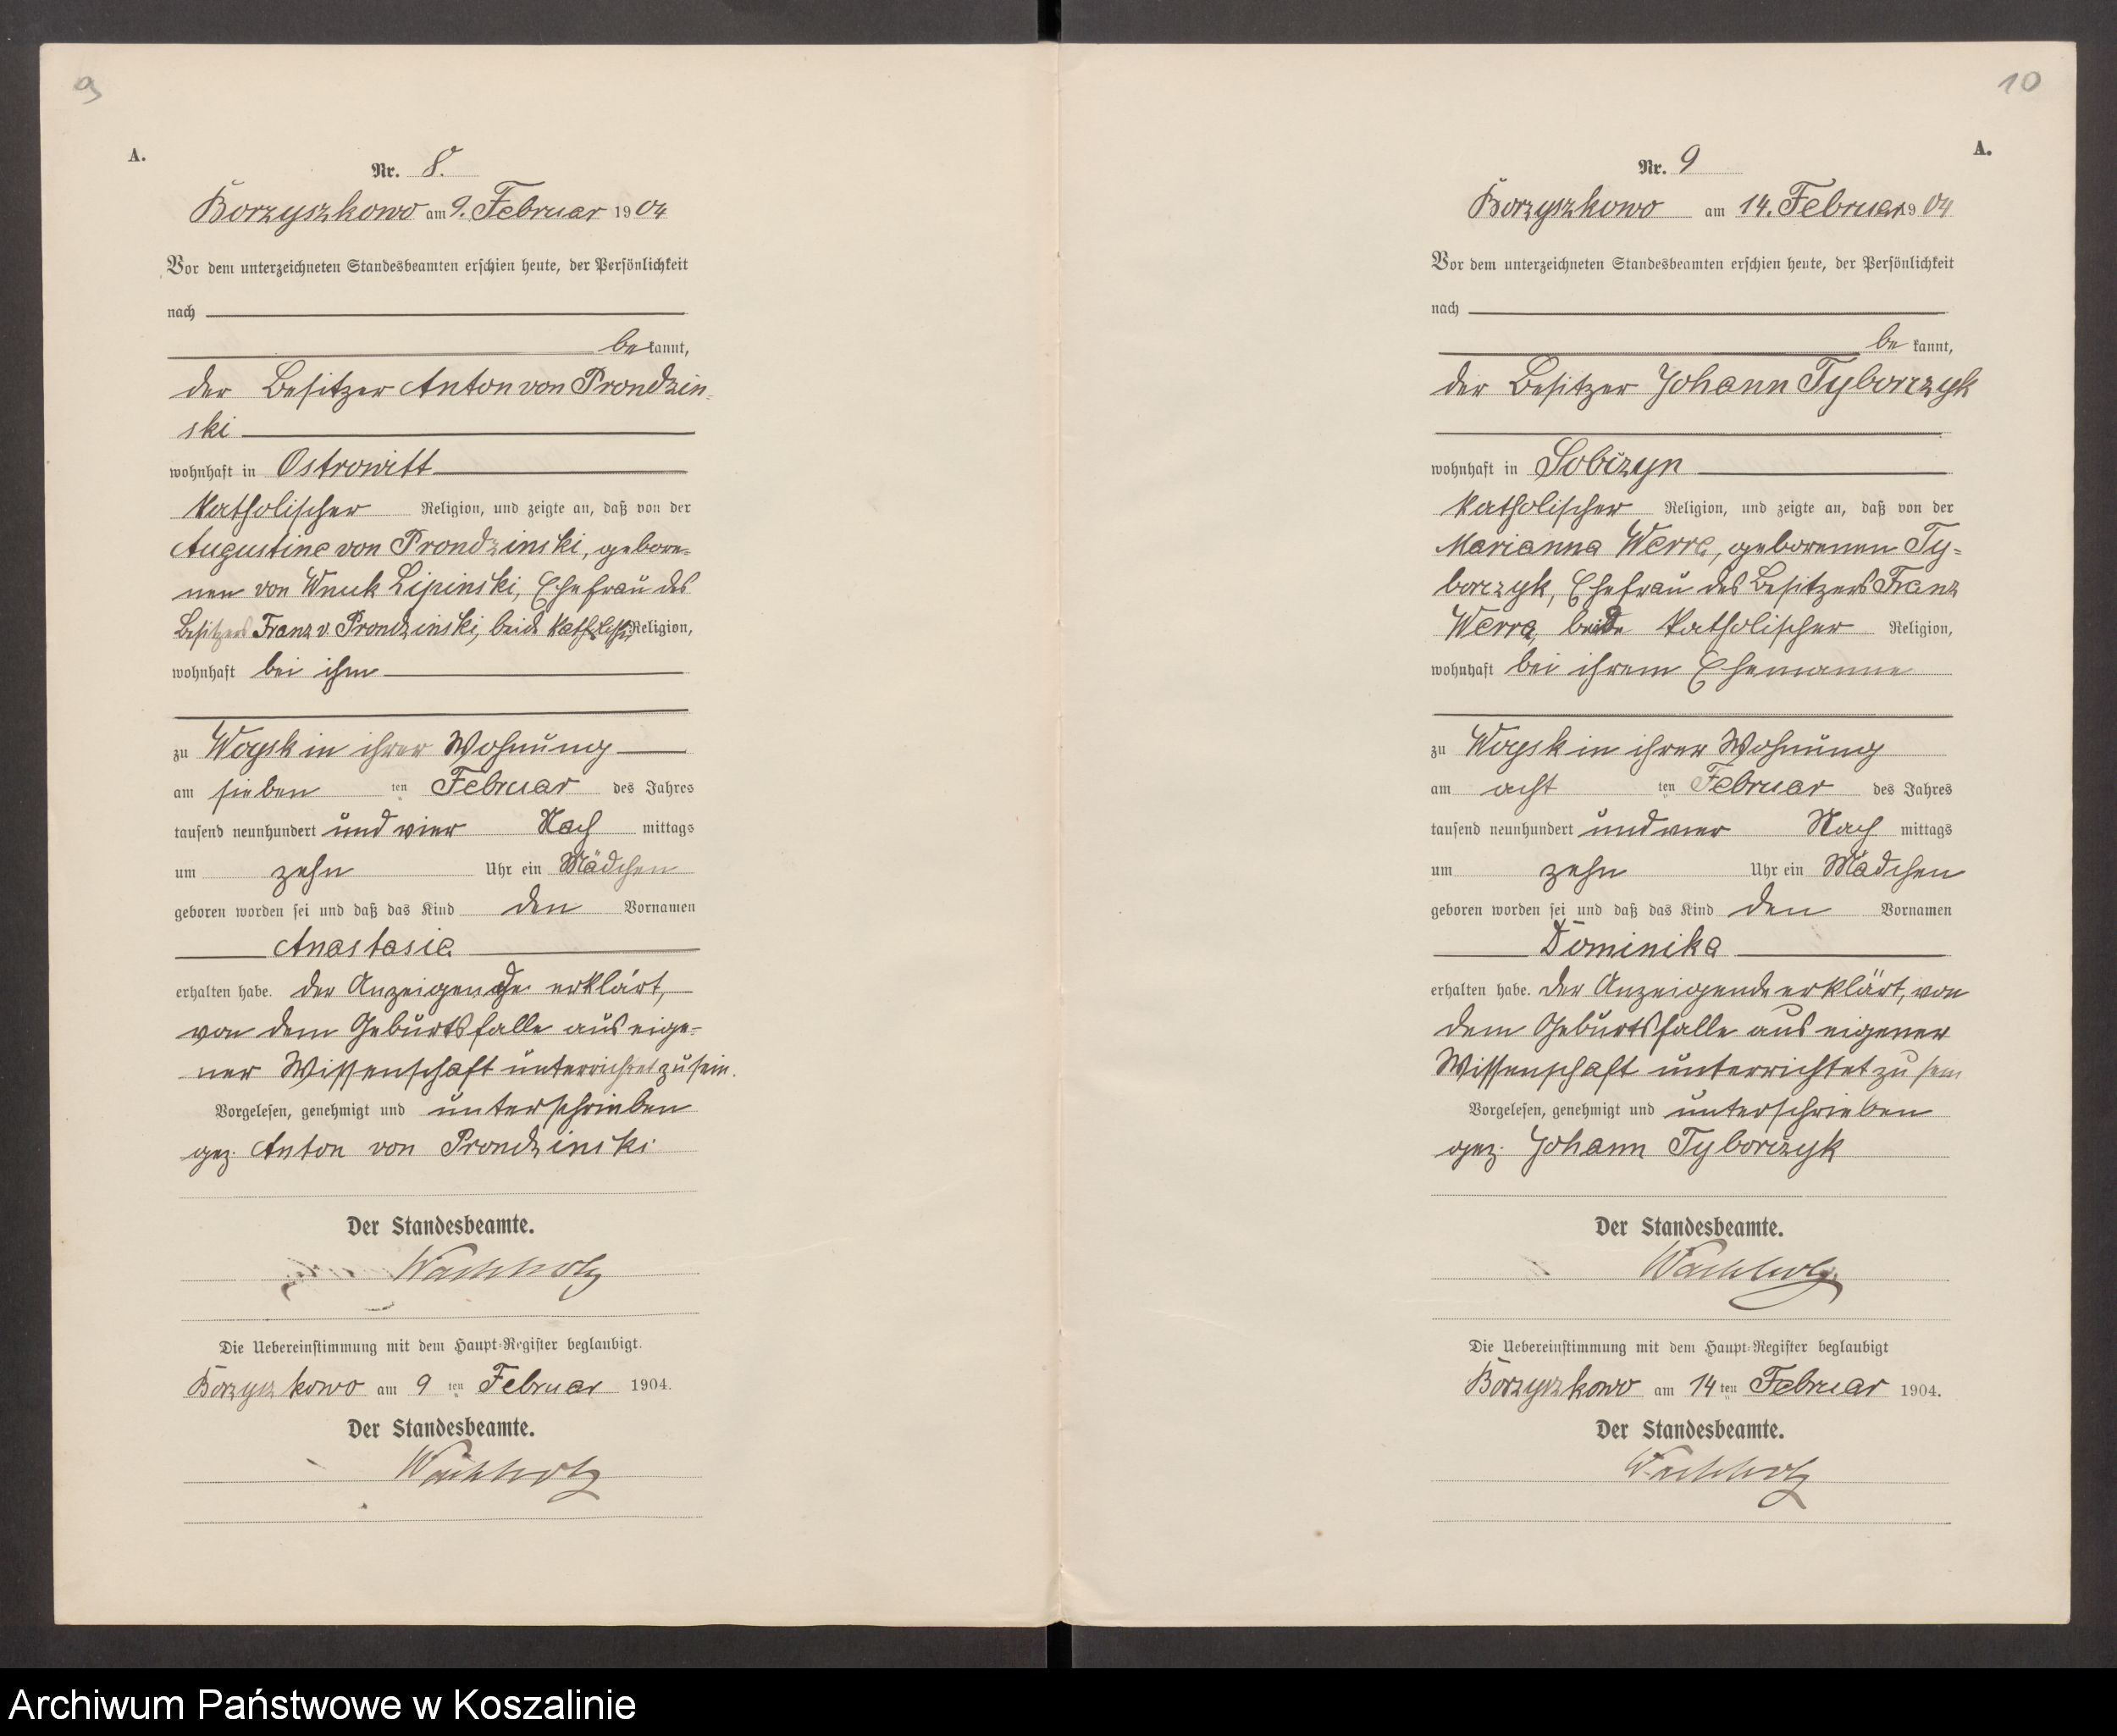 9
A.
Nr. 8.
Borzyszkowo am 9. Februar 1904
Vor dem unterzeichneten Standesbeamten erschien heute, der Persönlichkeit
nach
bekannt,
der Besitzer Anton von Prondzin-
ski
wohnhaft in Ostrowitt
katholischer Religion, und zeigte an, daß von der
Augustine von Prondzinski, gebore-
nen von Wnuk Lipinski, Ehefrau des
Besitzers Franz v. Prondzinski, beide kathol. Religion,
wohnhaft bei ihm
zu Woysk in ihrer Wohnung
am sieben ten Februar des Jahres
tausend neunhundert und vier Nach mittags
um zehn Uhr ein Mädchen
geboren worden sei und daß das Kind den Vornamen
Anastasia
erhalten habe. Der Anzeigende erklärt,
von dem Geburtsfalle aus eige-
ner Wissenschaft unterrichtet zu sein.
Vorgelesen, genehmigt und unterschrieben
gez. Anton von Prondzinski
Der Standesbeamte.
Wachholz
Die Uebereinstimmung mit dem Haupt-Register beglaubigt.
Borzyszkowo am 9 ten Februar 1904.
Der Standesbeamte.
Wachholz
10
A.
Nr. 9
Borzyszkowo am 14. Februar 1904
Vor dem unterzeichneten Standesbeamten erschien heute, der Persönlichkeit
nach
be kannt,
der Besitzer Johann Tyborczyk
wohnhaft in Sobczyn
katholischer Religion, und zeigte an, daß von der
Marianna Werra, geborenen Ty-
borczyk, Ehefrau des Besitzers Franz
Werra, beide katholischer Religion,
wohnhaft bei ihrem Ehemanne
zu Woysk in ihrer Wohnung
am acht ten Februar des Jahres
tausend neunhundert und vier Nach mittags
um zehn Uhr ein Mädchen
geboren worden sei und daß das Kind den Vornamen
Dominika
erhalten habe. Der Anzeigende erklärt, von
dem Geburtsfalle aus eigener
Wissenschaft unterrichtet zu sein
Vorgelesen, genehmigt und unterschrieben
gez. Johann Tyborczyk
Der Standesbeamte.
Wachholz
Die Uebereinstimmung mit dem Haupt-Register beglaubigt
Borzyszkowo am 14 ten Februar 1904.
Der Standesbeamte.
Wachholz
Archiwum Państwowe w Koszalinie